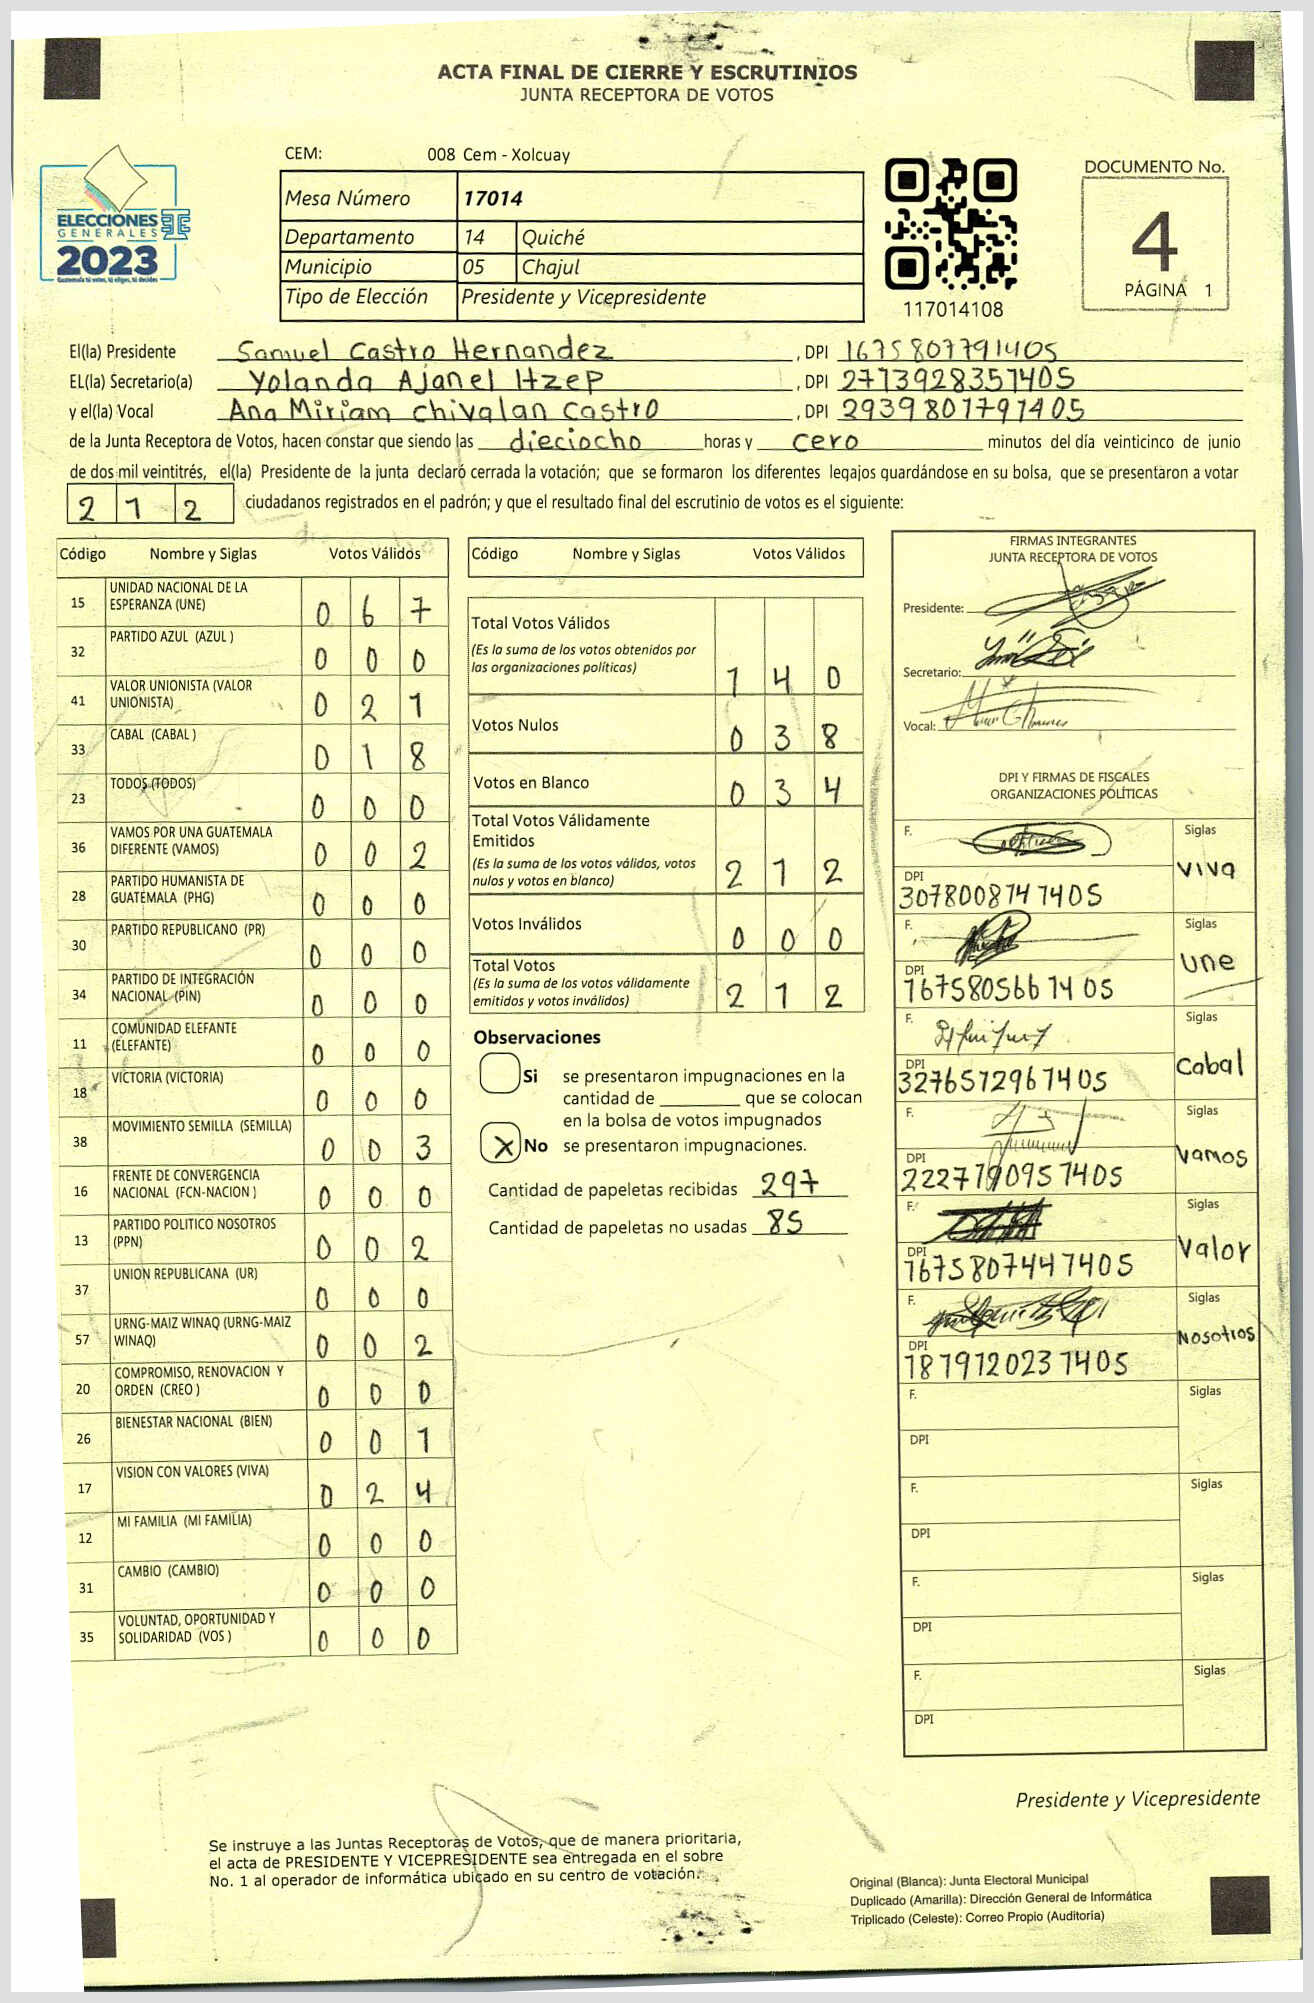 ACTA FINAL DE CIERRE Y ESCRUTINIOS
JUNTA RECEPTORA DE VOTOS
ELECCIONES
GENERALES
2023
Guatemala tú votas, tú eliges, tú decides
CEM: 008 Cem - Xolcuay
Mesa Número 17014
Departamento 14 Quiché
Municipio 05 Chajul
Tipo de Elección Presidente y Vicepresidente
117014108
DOCUMENTO No.
4
PÁGINA 1
El(la) Presidente Samuel Castro Hernandez , DPI 1675807791405
EL(la) Secretario(a) Yolanda Ajanel Itzep , DPI 2713928351405
y el(la) Vocal Ana Miriam Chivalan Castro , DPI 2939801791405
de la Junta Receptora de Votos, hacen constar que siendo las dieciocho horas y cero minutos del día veinticinco de junio
de dos mil veintitrés, el(la) Presidente de la junta declaró cerrada la votación; que se formaron los diferentes legajos guardándose en su bolsa, que se presentaron a votar
212 ciudadanos registrados en el padrón; y que el resultado final del escrutinio de votos es el siguiente:
Código Nombre y Siglas Votos Válidos
15 UNIDAD NACIONAL DE LA
ESPERANZA (UNE) 0 6 7
32 PARTIDO AZUL (AZUL ) 0 0 0
41 VALOR UNIONISTA (VALOR
UNIONISTA) 0 2 1
33 CABAL (CABAL ) 0 1 8
23 TODOS (TODOS) 0 0 0
36 VAMOS POR UNA GUATEMALA
DIFERENTE (VAMOS) 0 0 2
28 PARTIDO HUMANISTA DE
GUATEMALA (PHG) 0 0 0
30 PARTIDO REPUBLICANO (PR) 0 0 0
34 PARTIDO DE INTEGRACIÓN
NACIONAL (PIN) 0 0 0
11 COMUNIDAD ELEFANTE
(ELEFANTE) 0 0 0
18 VICTORIA (VICTORIA) 0 0 0
38 MOVIMIENTO SEMILLA (SEMILLA) 0 0 3
16 FRENTE DE CONVERGENCIA
NACIONAL (FCN-NACION ) 0 0 0
13 PARTIDO POLITICO NOSOTROS
(PPN) 0 0 2
37 UNION REPUBLICANA (UR) 0 0 0
57 URNG-MAIZ WINAQ (URNG-MAIZ
WINAQ) 0 0 2
20 COMPROMISO, RENOVACION Y
ORDEN (CREO ) 0 0 0
26 BIENESTAR NACIONAL (BIEN) 0 0 1
17 VISION CON VALORES (VIVA) 0 2 4
12 MI FAMILIA (MI FAMILIA) 0 0 0
31 CAMBIO (CAMBIO) 0 0 0
35 VOLUNTAD, OPORTUNIDAD Y
SOLIDARIDAD (VOS ) 0 0 0
Código Nombre y Siglas Votos Válidos
Total Votos Válidos
(Es la suma de los votos obtenidos por
las organizaciones políticas) 1 4 0
Votos Nulos 0 3 8
Votos en Blanco 0 3 4
Total Votos Válidamente
Emitidos
(Es la suma de los votos válidos, votos
nulos y votos en blanco) 2 1 2
Votos Inválidos 0 0 0
Total Votos
(Es la suma de los votos válidamente
emitidos y votos inválidos) 2 1 2
Observaciones
Si se presentaron impugnaciones en la
cantidad de ________ que se colocan
en la bolsa de votos impugnados
X No se presentaron impugnaciones.
Cantidad de papeletas recibidas 297
Cantidad de papeletas no usadas 85
FIRMAS INTEGRANTES
JUNTA RECEPTORA DE VOTOS
Presidente:
Secretario:
Vocal:
DPI Y FIRMAS DE FISCALES
ORGANIZACIONES POLÍTICAS
F. Siglas
VIVA
DPI
3078008741405
F. Siglas
Une
DPI
1675805661405
F. Siglas
Cabal
DPI
3276572961405
F. Siglas
Vamos
DPI
2227190951405
F. Siglas
Valor
DPI
1675807441405
F. Siglas
Nosotros
DPI
1819120231405
F. Siglas
DPI
F. Siglas
DPI
F. Siglas
DPI
F. Siglas
DPI
Presidente y Vicepresidente
Se instruye a las Juntas Receptoras de Votos, que de manera prioritaria,
el acta de PRESIDENTE Y VICEPRESIDENTE sea entregada en el sobre
No. 1 al operador de informática ubicado en su centro de votación.
Original (Blanca): Junta Electoral Municipal
Duplicado (Amarilla): Dirección General de Informática
Triplicado (Celeste): Correo Propio (Auditoría)